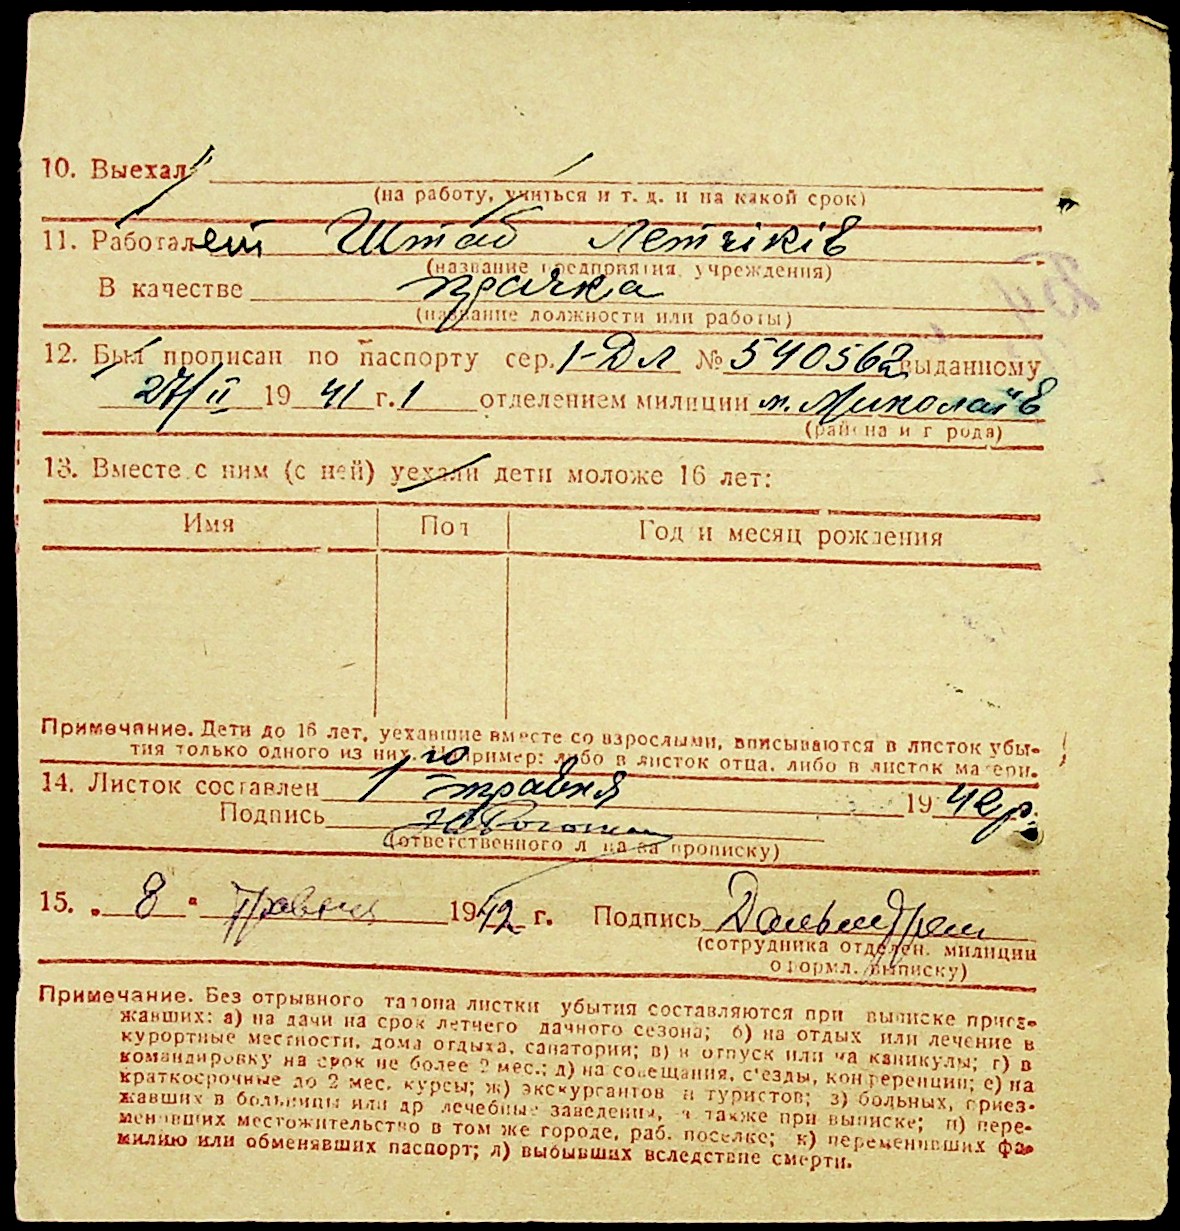 10. Выехал
(на работу, учиться и т. д. и на какой срок)
11. Работает Штаб Летчікiв
(название предприятия, учреждения)
В качестве прачка
(название должности или работы)
12. Был прописан по паспорту сер. 1-ДЛ № 540562 выданному
27/II 1941 г. 1 отделением милиции м. Миколаїв
(района и города)
13. Вместе с ним (с ней) уехали дети моложе 16 лет:
Имя Пол Год и месяц рождения
Примечание. Дети до 16 лет, уехавшие вместе со взрослыми, вписываются в листок убы-
тия только одного из них. Например: либо в листок отца, либо в листок матери.
14. Листок составлен 1го травня 1942р.
Подпись
(ответственного лица за прописку)
15. „8" травня 1942 г. Подпись
(сотрудника отделен. милиции
оформл. выписку)
Примечание. Без отрывного талона листки убытия составляются при выписке приез-
жавших: а) на дачи на срок летнего дачного сезона; б) на отдых или лечение в
курортные местности, дома отдыха, санатории; в) в отпуск или на каникулы; г) в
командировку на срок не более 2 мес.; д) на совещания, с'езды, конференции; е) на
краткосрочные до 2 мес. курсы; ж) экскургантов и туристов; з) больных, приез-
жавших в больницы или др лечебные заведения, а также при выписке; и) пере-
менивших местожительство в том же городе, раб. поселке; к) переменивших фа-
милию или обменявших паспорт; л) выбывших вследствие смерти.